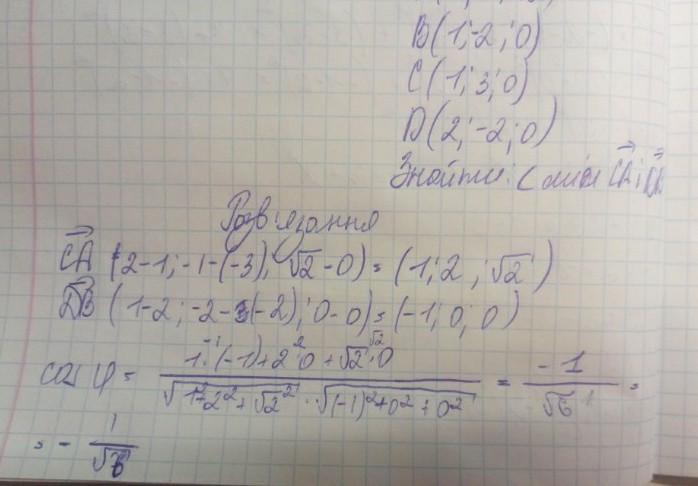 B(1;-2;0)
C(1;3;0)
D(2;-2;0)
Знайти: ∠ між CA;
Розв'язання
CA (2-1;-1-(-3);√2-0)=(1;2;√2)
DB (1-2;-2-(-2);0-0)=(-1;0;0)
cos φ = 1·(-1)+2·0+√2·0 / √1²+2²+√2² · √(-1)²+0²+0² = -1/√6 =
= - 1/√6